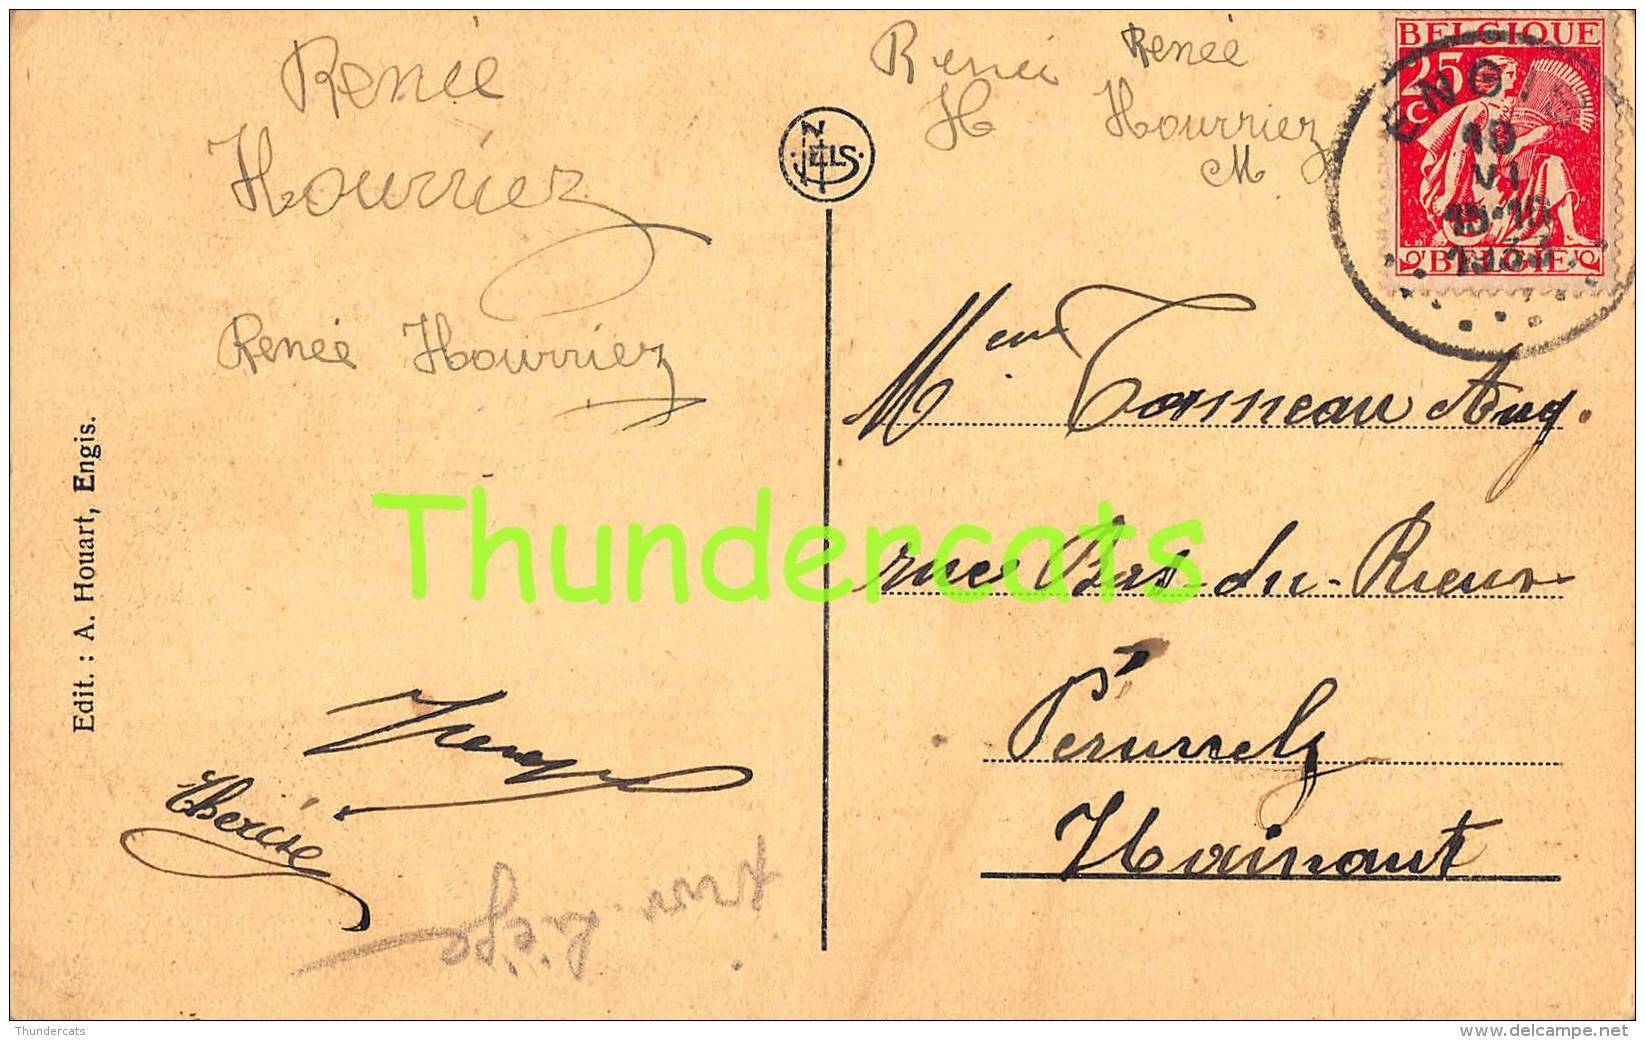 Renée
Hourriez
Renée Hourriez
Renée
H
Renée
Hourriez
M
NELS
BELGIQUE
25
C
BELGIË
ENGIS
10
VI
1933
Tonneau Aug.
rue Bas-du-Rieux
Péruwelz
Hainaut
Edit. : A. Houart, Engis.
Thérèse
Thundercats
Thundercats
www.delcampe.net